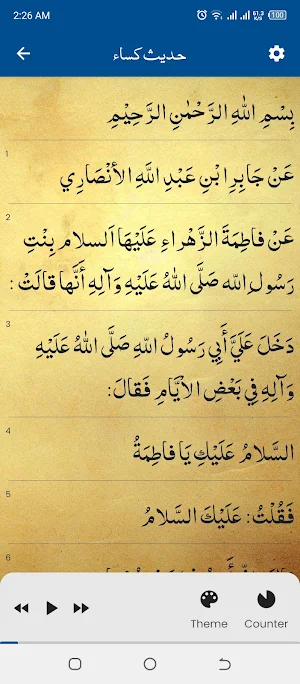 2:26 AM
61.3 K/s
100
حدیث کساء
بِسْمِ اللهِ الرَّحْمٰنِ الرَّحِيْمِ
1
عَنْ جَابِرِ ابْنِ عَبْدِ اللَّهِ الأَنْصَارِي
2
عَنْ فاطِمَةَ الزَّهْراءِ عَلَيْهَا اَلسلام بِنْتِ
رَسُولِ اللّه صَلَّى اللهُ عَلَيْهِ وَآلِهِ أَنَّها قالَتْ :
3
دَخَلَ عَلَيَّ أَبِي رَسُولُ اللهِ صَلَّى اللهُ عَلَيْهِ
وَآلِهِ فِي بَعْضِ الاْيَّامِ فَقالَ:
4
السَّلامُ عَلَيْكِ يَا فاطِمَةُ
5
فَقُلْتُ: عَلَيْكَ السَّلامُ
6
Theme
Counter